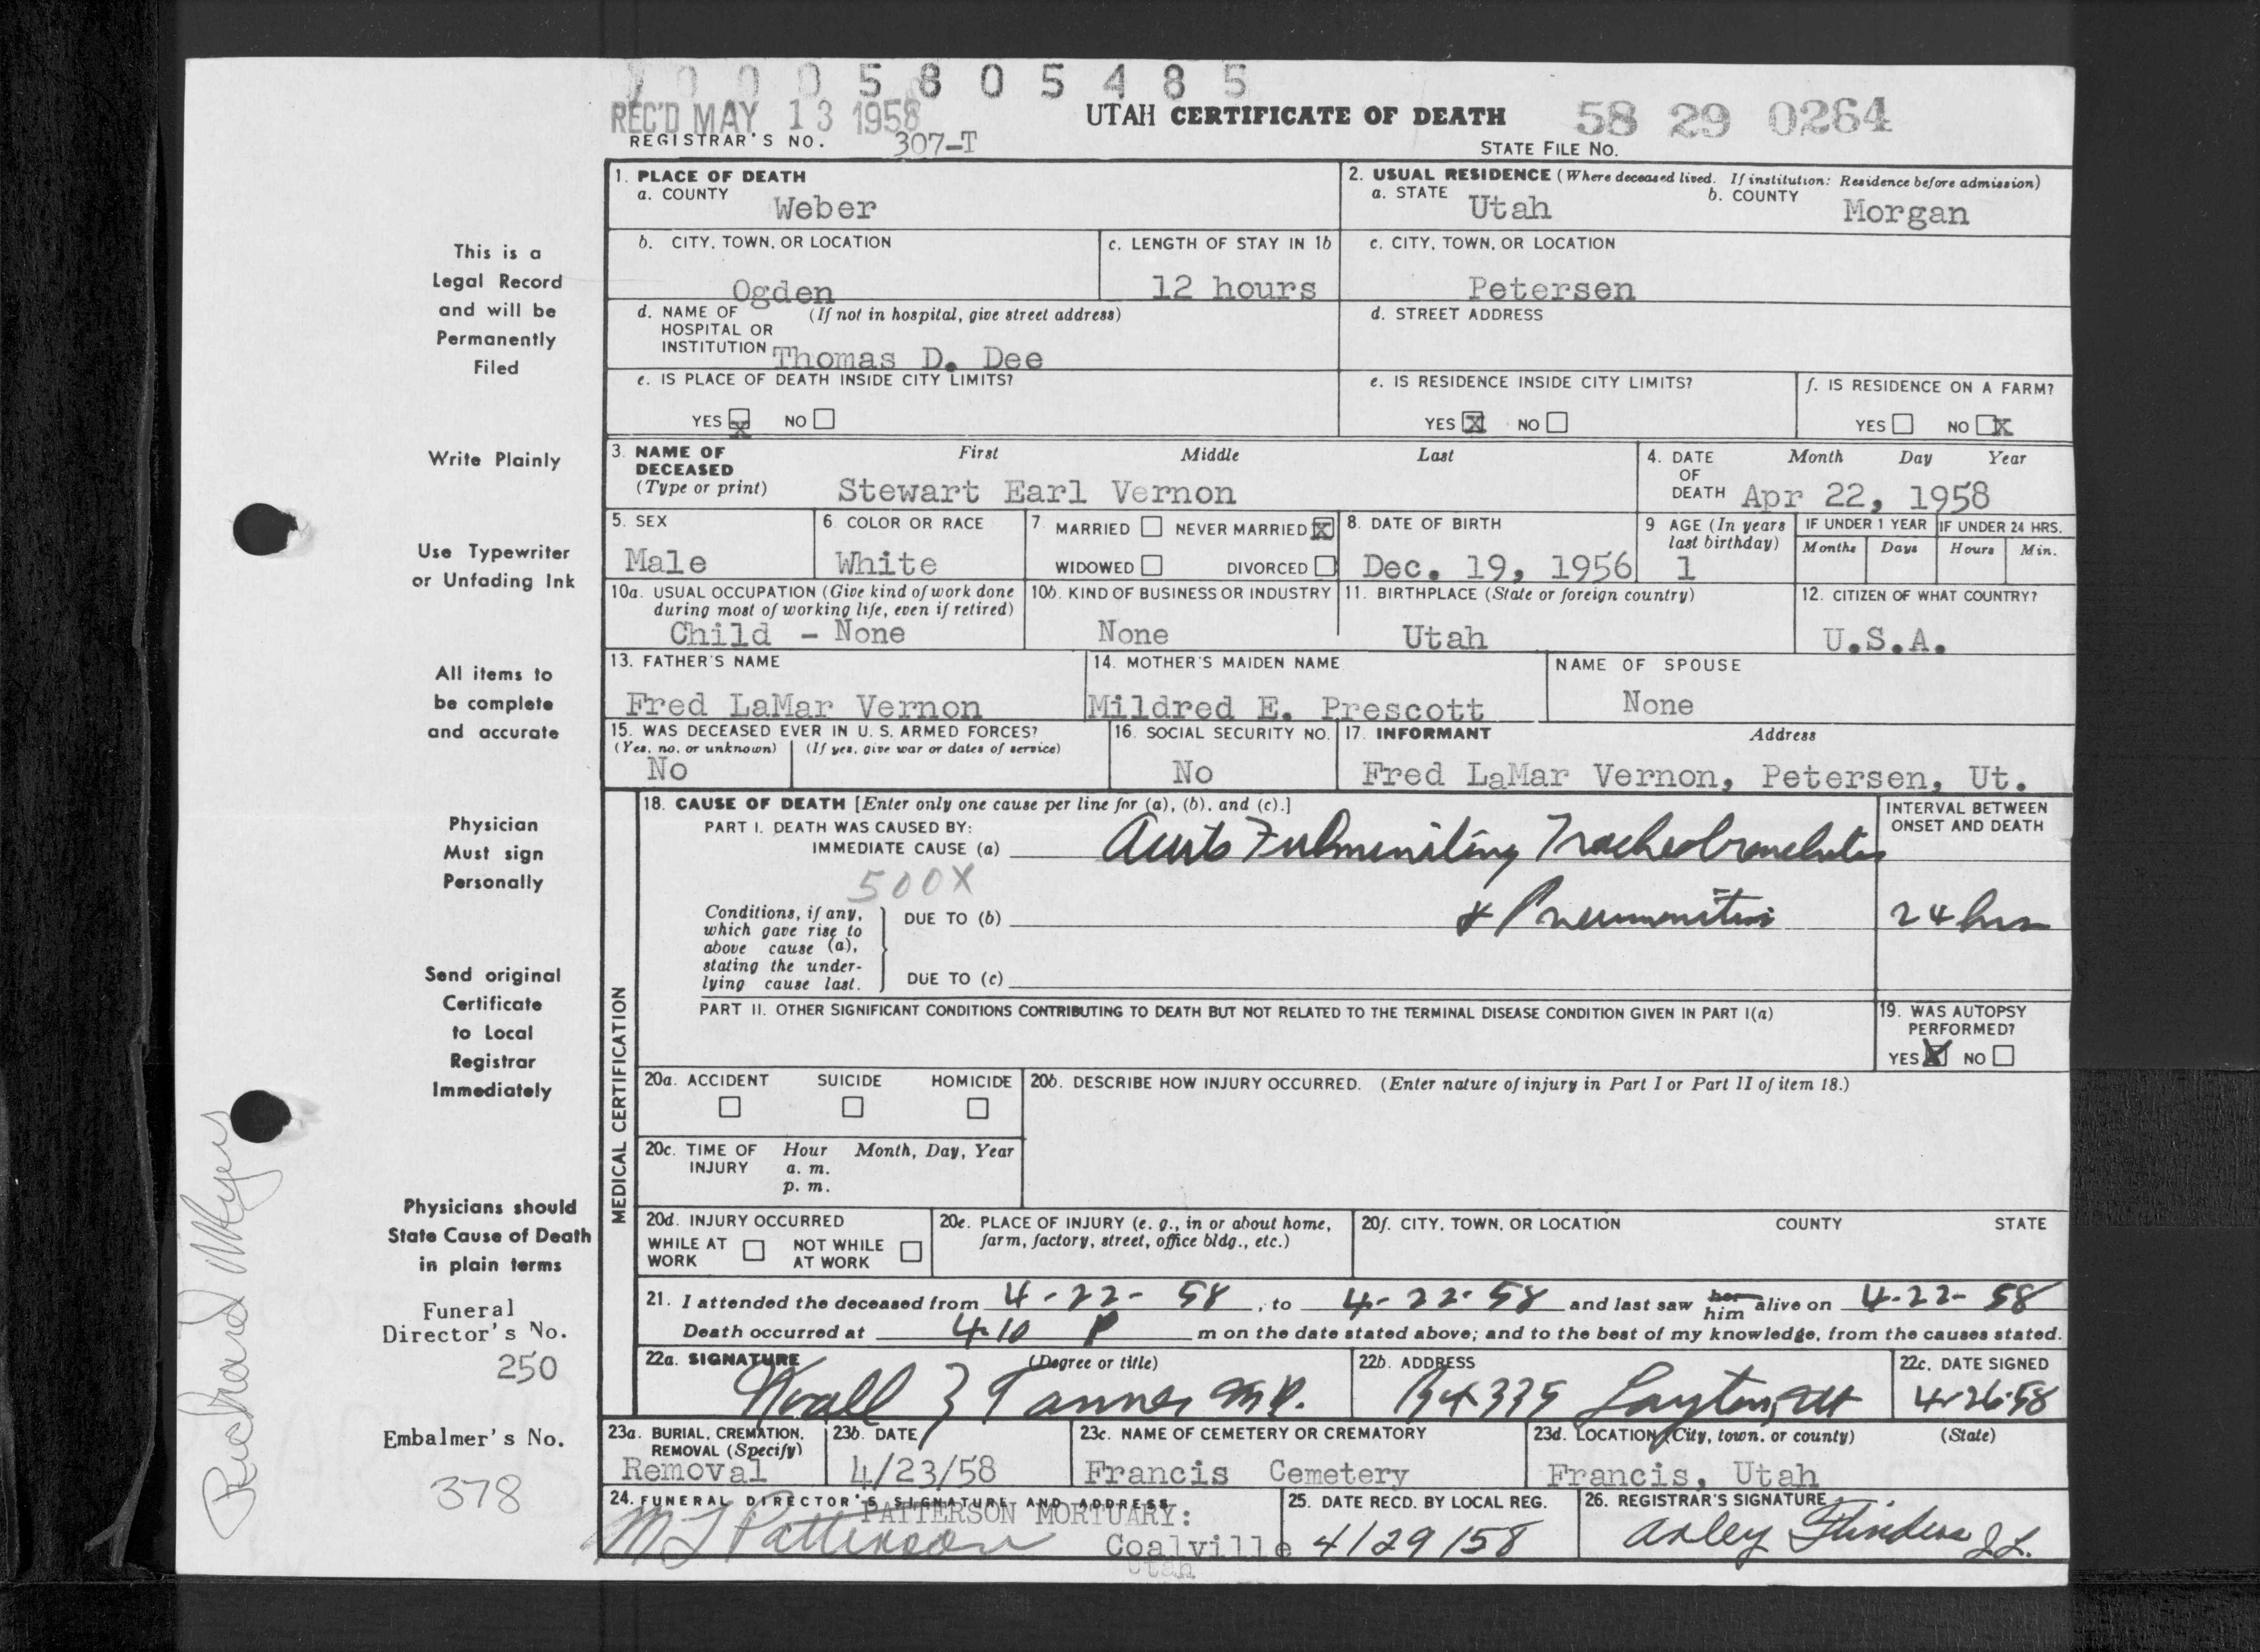 7 0 0 0 5 8 0 5 4 8 5
REC'D MAY 13 1958
UTAH CERTIFICATE OF DEATH
58 29 0264
REGISTRAR'S NO. 307-T
STATE FILE NO.
This is a
Legal Record
and will be
Permanently
Filed
Write Plainly
Use Typewriter
or Unfading Ink
All items to
be complete
and accurate
Physician
Must sign
Personally
Send original
Certificate
to Local
Registrar
Immediately
Physicians should
State Cause of Death
in plain terms
Funeral
Director's No.
250
Embalmer's No.
378
Richard Myers
1. PLACE OF DEATH
a. COUNTY Weber
2. USUAL RESIDENCE (Where deceased lived. If institution: Residence before admission)
a. STATE Utah b. COUNTY Morgan
b. CITY, TOWN, OR LOCATION Ogden
c. LENGTH OF STAY IN 1b 12 hours
c. CITY, TOWN, OR LOCATION Petersen
d. NAME OF (If not in hospital, give street address)
HOSPITAL OR
INSTITUTION Thomas D. Dee
d. STREET ADDRESS
e. IS PLACE OF DEATH INSIDE CITY LIMITS?
YES X NO
e. IS RESIDENCE INSIDE CITY LIMITS?
YES X NO
f. IS RESIDENCE ON A FARM?
YES NO X
3. NAME OF DECEASED (Type or print)
First Middle Last
Stewart Earl Vernon
4. DATE OF DEATH Month Day Year
Apr 22, 1958
5. SEX
Male
6. COLOR OR RACE
White
7. MARRIED NEVER MARRIED X
WIDOWED DIVORCED
8. DATE OF BIRTH
Dec. 19, 1956
9 AGE (In years last birthday)
1
IF UNDER 1 YEAR
Months Days
IF UNDER 24 HRS.
Hours Min.
10a. USUAL OCCUPATION (Give kind of work done
during most of working life, even if retired)
Child - None
10b. KIND OF BUSINESS OR INDUSTRY
None
11. BIRTHPLACE (State or foreign country)
Utah
12. CITIZEN OF WHAT COUNTRY?
U.S.A.
13. FATHER'S NAME
Fred LaMar Vernon
14. MOTHER'S MAIDEN NAME
Mildred E. Prescott
NAME OF SPOUSE
None
15. WAS DECEASED EVER IN U. S. ARMED FORCES?
(Yes, no, or unknown) (If yes, give war or dates of service)
No
16. SOCIAL SECURITY NO.
No
17. INFORMANT Address
Fred LaMar Vernon, Petersen, Ut.
MEDICAL CERTIFICATION
18. CAUSE OF DEATH [Enter only one cause per line for (a), (b), and (c).]
INTERVAL BETWEEN
ONSET AND DEATH
PART I. DEATH WAS CAUSED BY:
IMMEDIATE CAUSE (a) Acute Fulminating Tracheobronchitis
500X
Conditions, if any,
which gave rise to
above cause (a),
stating the under-
lying cause last.
DUE TO (b) & Pneumonitis 24 hrs
DUE TO (c)
PART II. OTHER SIGNIFICANT CONDITIONS CONTRIBUTING TO DEATH BUT NOT RELATED TO THE TERMINAL DISEASE CONDITION GIVEN IN PART I(a)
19. WAS AUTOPSY
PERFORMED?
YES X NO
20a. ACCIDENT SUICIDE HOMICIDE
20b. DESCRIBE HOW INJURY OCCURRED. (Enter nature of injury in Part I or Part II of item 18.)
20c. TIME OF INJURY Hour Month, Day, Year
a. m.
p. m.
20d. INJURY OCCURRED
WHILE AT WORK NOT WHILE AT WORK
20e. PLACE OF INJURY (e. g., in or about home,
farm, factory, street, office bldg., etc.)
20f. CITY, TOWN, OR LOCATION COUNTY STATE
21. I attended the deceased from 4-22-58, to 4-22-58 and last saw her him alive on 4-22-58
Death occurred at 4:10 P m on the date stated above; and to the best of my knowledge, from the causes stated.
22a. SIGNATURE (Degree or title)
Noall Z Tanner M.D.
22b. ADDRESS
Layton, Ut
22c. DATE SIGNED
4-26-58
23a. BURIAL, CREMATION,
REMOVAL (Specify)
Removal
23b. DATE
4/23/58
23c. NAME OF CEMETERY OR CREMATORY
Francis Cemetery
23d. LOCATION (City, town, or county) (State)
Francis, Utah
24. FUNERAL DIRECTOR'S SIGNATURE AND ADDRESS
PATTERSON MORTUARY:
M L Patterson Coalville
Utah
25. DATE RECD. BY LOCAL REG.
4/29/58
26. REGISTRAR'S SIGNATURE
Arley Flinders J.L.